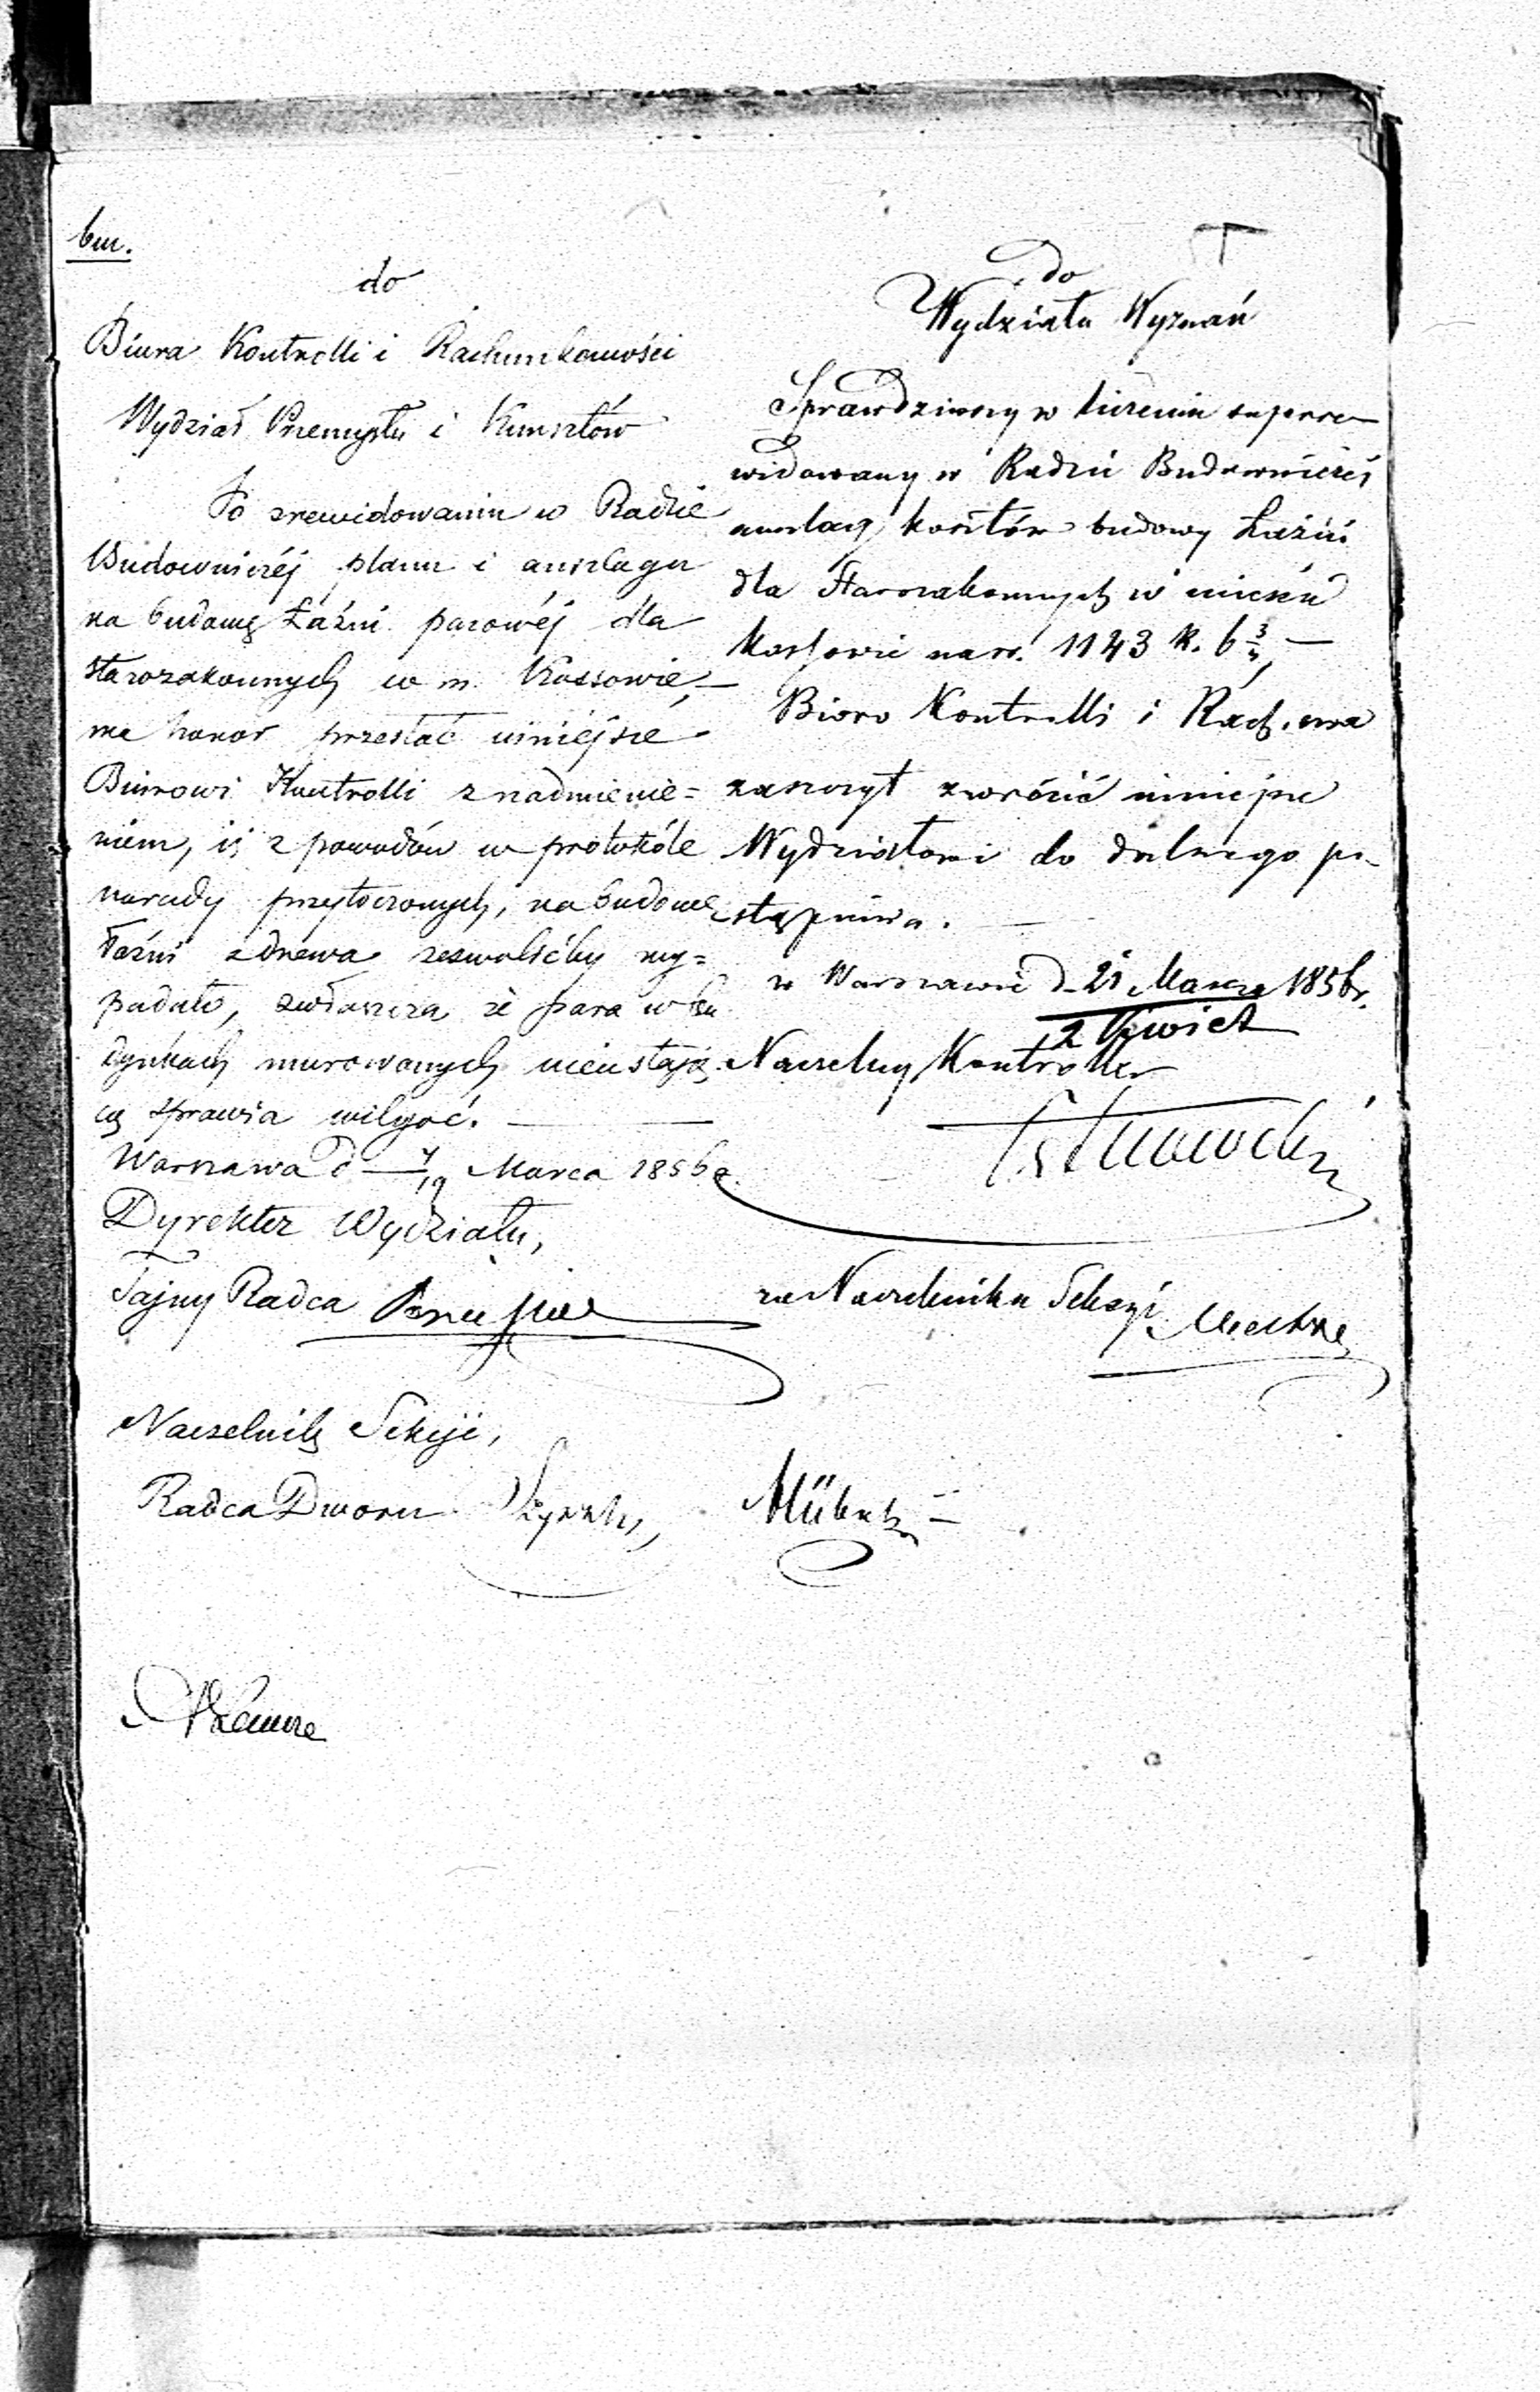 bm.
do
Biura Kontrolli i Rachunkowości
Wydział Przemysłu i Kunsztów
Po zrewidowaniu w Radzie
Budowniczéj planu i anszlagu
na budowę Łaźni parowéj dla
starozakonnych w m. Kossowie,—
ma honor przesłać niniejsze
Biurowi Kontrolli z nadmienie=
niem, iż z powodów w protokóle
narady przytoczonych, na budowę
łaźni z drzewa zezwolićby wy=
padało, zwłaszcza że para w bu
dynkach murowanych nieustają
cą sprawia wilgoć. —
Warszawa d 7/19 Marca 1856 r.
Dyrektor Wydziału,
Tajny Radca
Naczelnik Sekcji,
Radca Dworu
do
Wydziału Wyznań
Sprawdziwszy w liczeniu superre
widowany w Radzie Budowniczéj
anszlag kosztów budowy Łaźni
dla Starozakonnych w mieście
Kossowie na rs. 1143 k. 6 3/4 —
Bioro Kontrolli i Rach. ma
zaszczyt zwrócić niniejsze
Wydziałowi do dalszego po
stąpienia. —
w Warszawie d. 21 Marca 1856 r.
2 Kwiet
Naczelny Kontroler
za Naczelnika Sekcyi